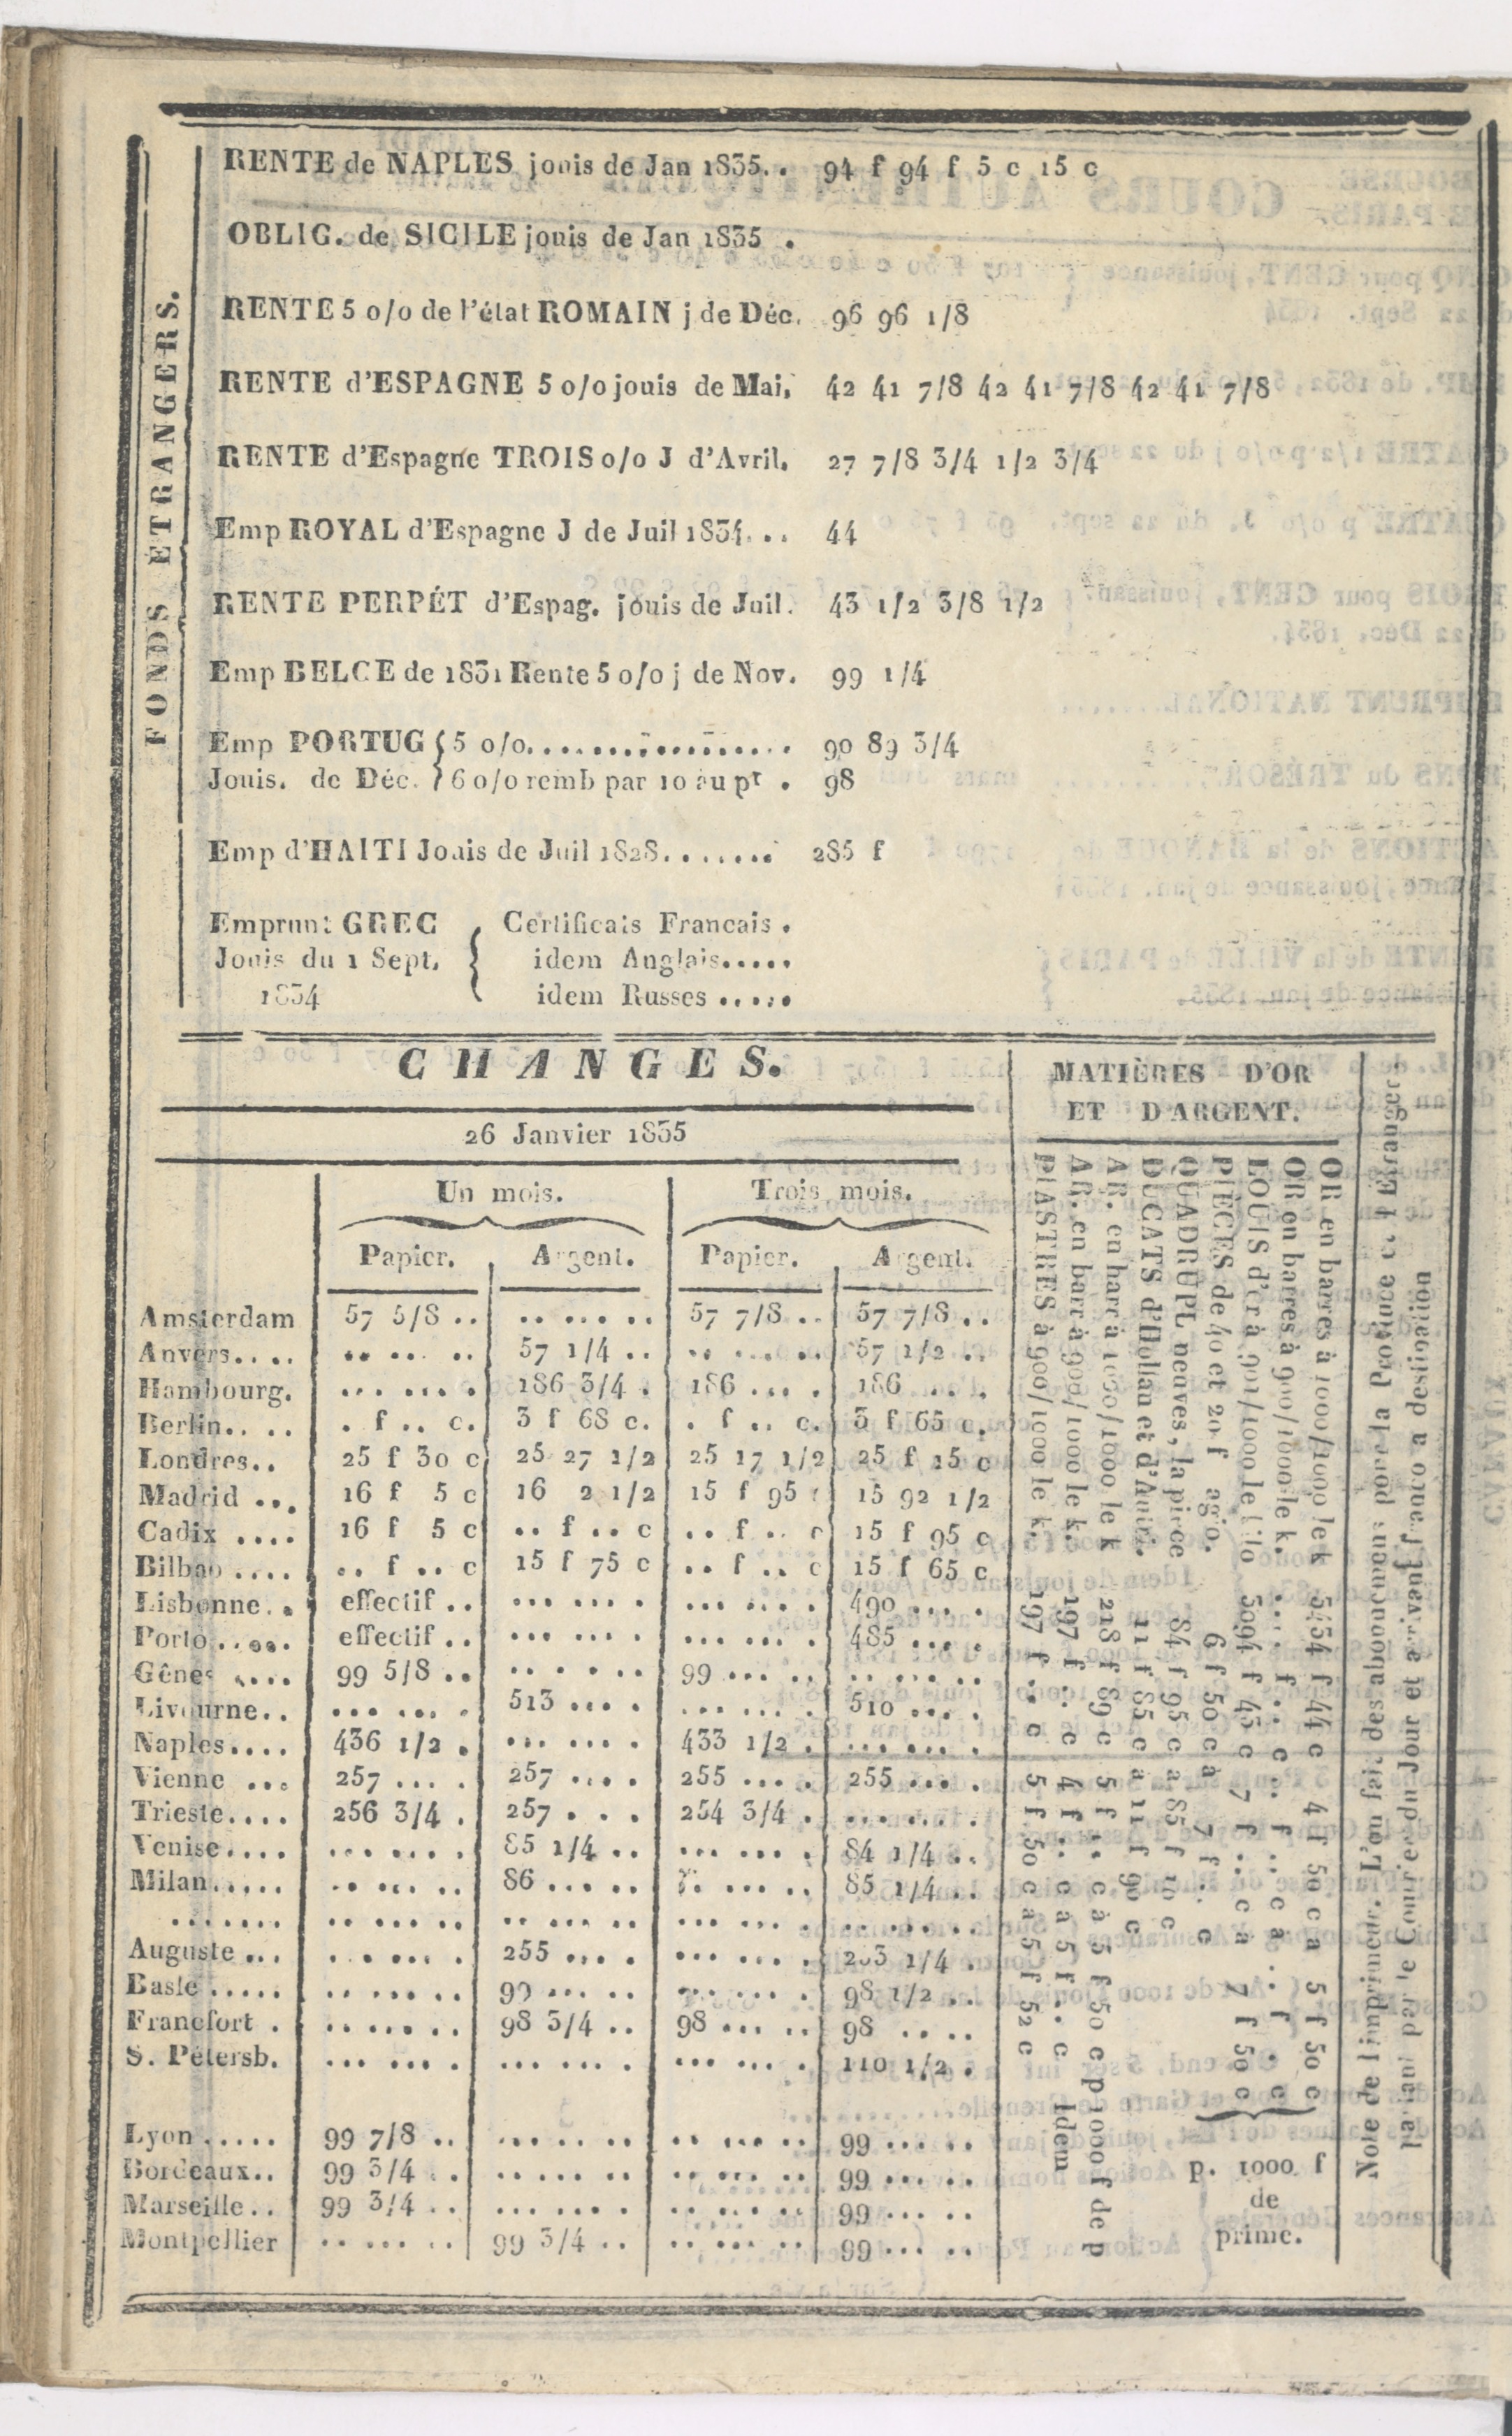 FONDS ÉTRANGERS.
RENTE de NAPLES jouis de Jan 1835. . 94 f 94 f 5 c 15 c
OBLIG. de SICILE jouis de Jan 1835 .
RENTE 5 o/o de l'état ROMAIN j de Déc. 96 96 1/8
RENTE d'ESPAGNE 5 o/o jouis de Mai. 42 41 7/8 42 41 7/8 42 41 7/8
RENTE d'Espagne TROIS o/o J d'Avril. 27 7/8 3/4 1/2 3/4
Emp ROYAL d'Espagne J de Juil 1834. . . 44
RENTE PERPÉT d'Espag. jouis de Juil. 43 1/2 3/8 1/2
Emp BELGE de 1831 Rente 5 o/o j de Nov. 99 1/4
Emp PORTUG { 5 o/o.................. 90 89 3/4
Jouis. de Déc. } 6 o/o remb par 10 au pt . 98
Emp d'HAITI Jouis de Juil 1828....... 285 f
Emprunt GREC { Certificats Francais .
Jouis du 1 Sept. idem Anglais.....
1834 idem Russes .....
CHANGES.
26 Janvier 1835
Un mois. Trois mois.
Papier. Argent. Papier. Argent.
Amsterdam 57 5/8 .. .. ... .. 57 7/8 .. 57 7/8 ..
Anvers.... .. ... .. 57 1/4 .. .. ... .. 57 1/2 ..
Hambourg. ... ... . 186 3/4 . 186 ... . 186 ... .
Berlin.. .. . f .. c. 3 f 68 c. . f .. c. 3 f 65 c.
Londres.. 25 f 30 c 25 27 1/2 25 17 1/2 25 f 15 c
Madrid ... 16 f 5 c 16 2 1/2 15 f 95 c 15 92 1/2
Cadix .... 16 f 5 c .. f .. c .. f .. c 15 f 95 c
Bilbao .... .. f .. c 15 f 75 c .. f .. c 15 f 65 c
Lisbonne. . effectif .. ... ... . ... ... . 490 ... .
Porto...... effectif .. ... ... . ... ... . 485 ... .
Gênes .... 99 5/8 .. .. ... .. 99 ... .. .. ... ..
Livourne.. ... ... . 513 ... . ... ... . 510 ... .
Naples.... 436 1/2 . ... ... . 433 1/2 . ... ... .
Vienne ... 257 ... . 257 ... . 255 ... . 255 ... .
Trieste.... 256 3/4 . 257 . . . 254 3/4 . ... ... .
Venise.... ... ... . 85 1/4 .. ... ... . 84 1/4 ..
Milan..... .. ... .. 86 ... .. .. ... .. 85 1/4 ..
....... .. ... .. .. ... .. ... ... . .. ... ..
Auguste ... .. ... . 255 ... . ... ... . 253 1/4 .
Basle ..... .. ... .. 99 ... .. .. ... .. 98 1/2 ..
Francfort . .. ... .. 98 3/4 .. 98 ... .. 98 .. ..
S. Pétersb. ... ... . ... ... . ... ... . 110 1/2 .
Lyon ..... 99 7/8 .. ... .. .. .. ... .. 99 ... ..
Bordeaux.. 99 3/4 .. .. ... .. .. ... .. 99 ... ..
Marseille.. 99 3/4 .. ... ... . .. ... .. 99 ... ..
Montpellier .. ... .. 99 3/4 .. .. ... .. 99 ... ..
MATIÈRES D'OR
ET D'ARGENT.
OR en barres à 1000/1000 le k 3434 f 44 c 4 f 50 c a 5 f 50 c
OR en barres à 900/1000 le k. ... f .. c .. f .. c à .. f . c
LOUIS d'or à 901/1000 le kilo 3094 f 43 c 7 f .. c a 7 f 50 c
PIÈCES de 40 et 20 f agio. 6 f 50 c à 7 f .. c
QUADRUPL neuves, la piece 84 f 95 c a 85 f 10 c
DUCATS d'Hollan et d'Autri. 11 f 85 c a 11 f 90 c
AR. en bar à 1000/1000 le k 218 f 89 c 5 f .. c à 5 f 50 c p 1000 f de p
AR. en barr à 900/1000 le k. 197 f .. c 4 f .. c a 5 f .. c Idem
PIASTRES à 900/1000 le k. 197 f .. c 5 f 50 c a 5 f 52 c
p. 1000 f
de
prime.
Note de l'imprimeur. L'on fait des abonnemens pour la Province et l'Etranger
partant par le Courier du Jour et arrivant franco a destination